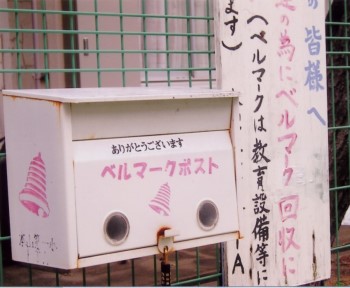 の皆様へ
の為にベルマーク回収に
(ベルマークは教育設備等に
ます)
A
ありがとうございます
ベルマークポスト